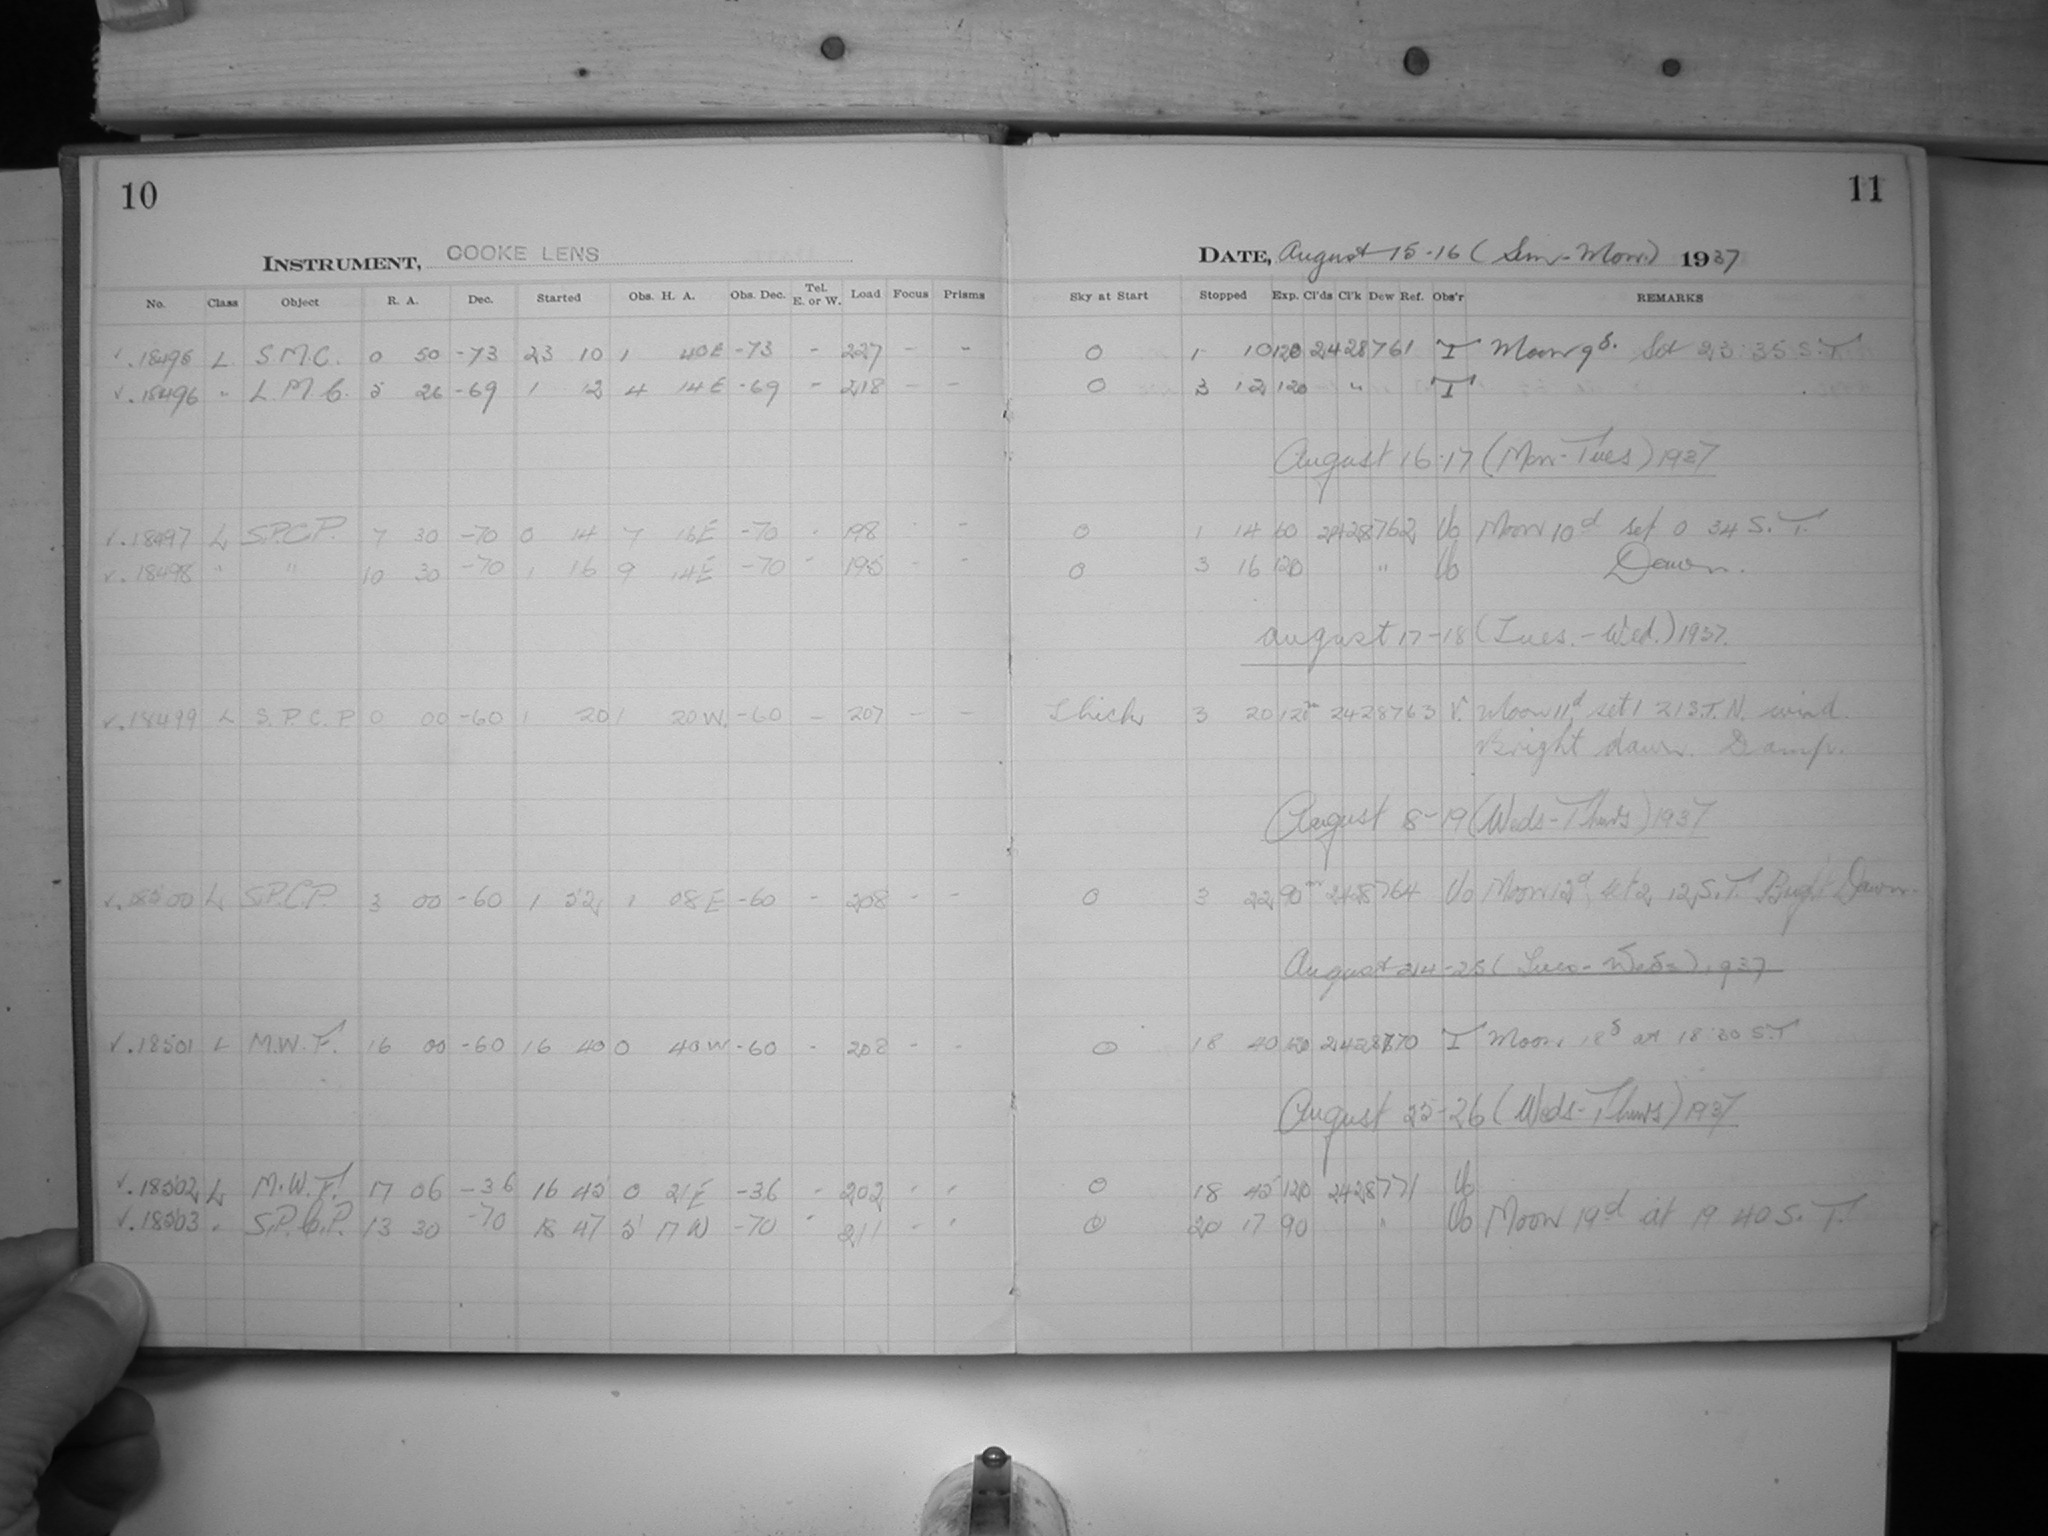 10
11
INSTRUMENT, COOKE LENS
DATE, August 15-16 (Sun-Mon) 1937
No. Class Object R. A. Dec. Started Obs. H. A. Obs. Dec. Tel. E. or W. Load Focus Prisms Sky at Start Stopped Exp. Cl'ds Cl'k Dew Ref. Obs'r REMARKS
√. 18495 L S.M.C. 0 50 -73 23 10 1 40E -73 - 227 - - 0 1 10 120 2428761 T Moon 9d. Set 23:35 S.T.
√. 18496 " L.M.C. 5 26 -69 1 12 4 14E -69 - 218 - - 0 3 12 120 " T
August 16-17 (Mon-Tues) 1937
√. 18497 L S.P.C.P. 7 30 -70 0 14 7 16E -70 - 198 - - 0 1 14 60 2428762 Uo Moon 10d set 0 34 S.T.
√. 18498 " " 10 30 -70 1 16 9 14E -70 - 195 - - 0 3 16 120 " Uo Dawn.
August 17-18 (Tues.-Wed.) 1937.
√. 18499 L S.P.C.P 0 00 -60 1 20 1 20W. -60 - 207 - - Thick 3 20 120m 2428763 V. Moon 11d, set 1 21 S.T. N. wind.
Bright dawn. Damp.
August 8-19 (Weds-Thurs) 1937
√. 18500 L S.P.C.P. 3 00 -60 1 52 1 08E -60 - 208 - - 0 3 22 90m 2428764 Uo Moon 12d, set 2 12 S.T. Bright Dawn.
August 24-25 (Tues-Weds) 1937
√. 18501 L M.W.F. 16 00 -60 16 40 0 40W -60 - 208 - - 0 18 40 120 2428770 T Moon 18d at 18:30 S.T
August 25-26 (Weds-Thurs) 1937
√. 18502 L M.W.F. 17 06 -36 16 45 0 21E -36 - 202 - - 0 18 45 120 2428771 Uo
√. 18503 " S.P.C.P. 13 30 -70 18 47 5 17W -70 - 211 - - 0 20 17 90 " Uo Moon 19d at 19 40 S.T.